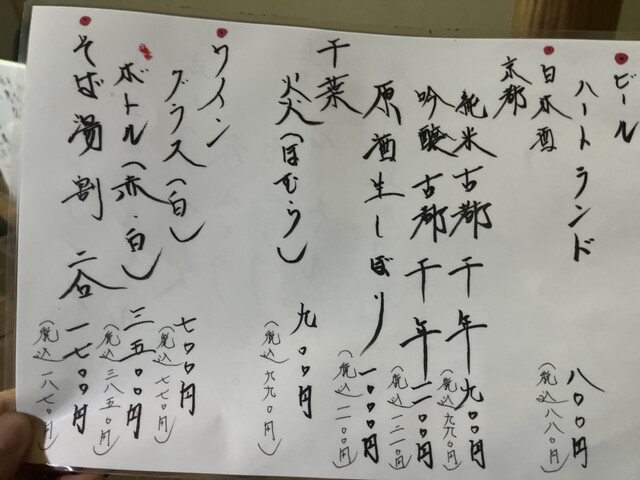 ビール
ハートランド 八〇〇円
(税込八八〇円)
日本酒
京都
純米古都千年 九〇〇円
(税込九九〇円)
吟醸古都千年 一一〇〇円
(税込一二一〇円)
原酒生しぼり 一〇〇〇円
(税込一一〇〇円)
千葉
焱(ほむら) 九〇〇円
(税込九九〇円)
ワイン
グラス(白) 七〇〇円
(税込七七〇円)
ボトル(赤・白) 三五〇〇円
(税込三八五〇円)
そば湯割 二合 一七〇〇円
(税込一八七〇円)